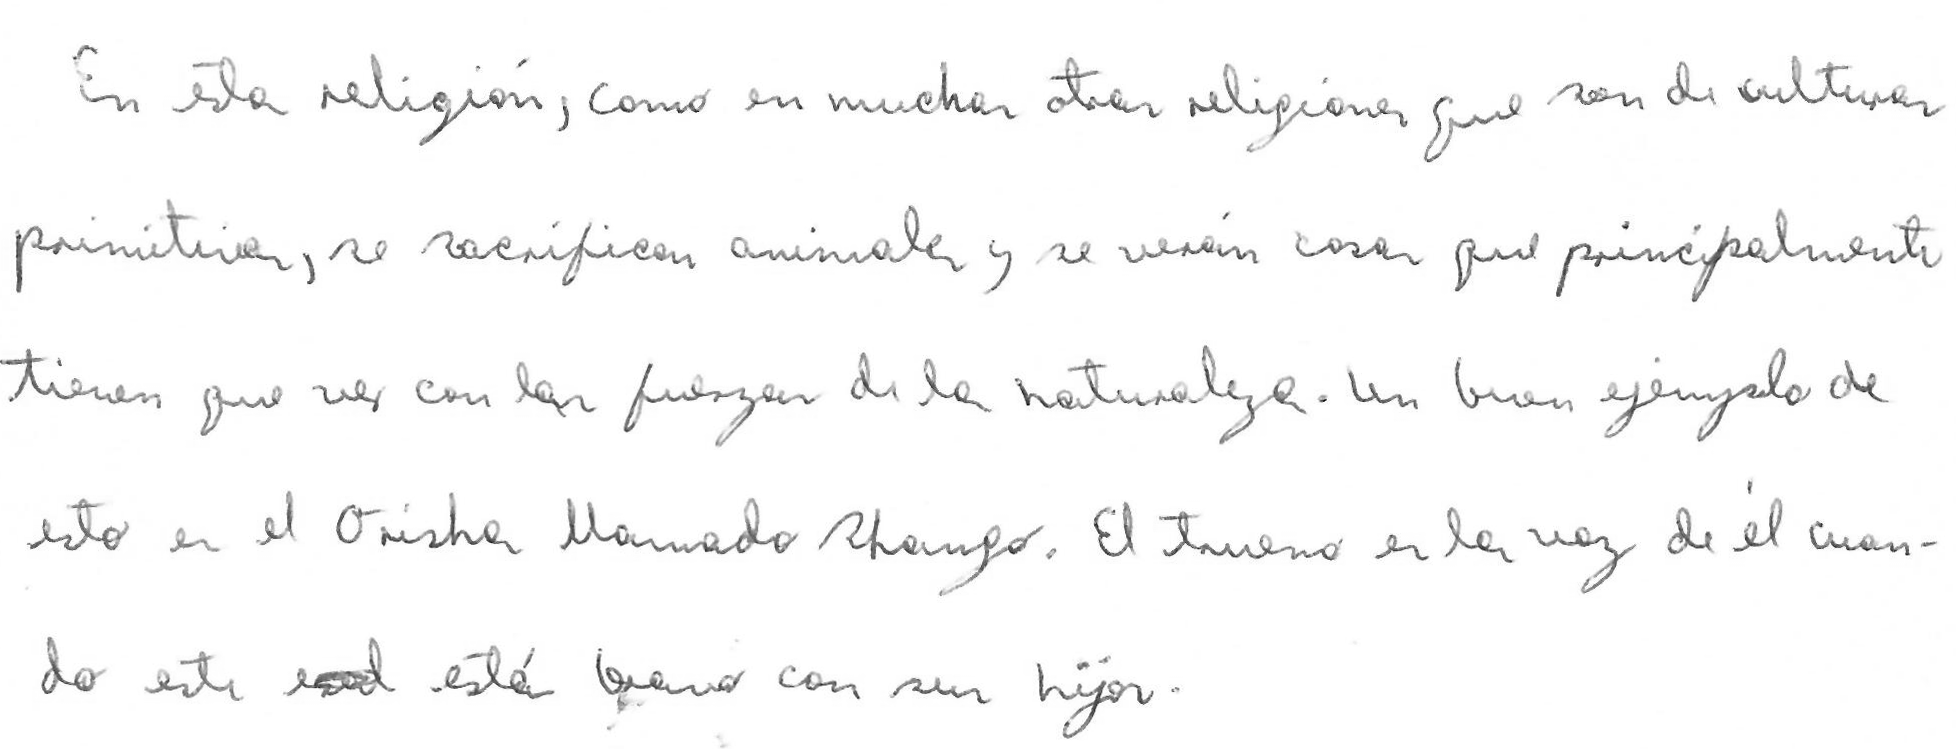 En esta religión, como en muchas otras religiones que son de culturas
primitivas, se sacrifican animales y se verán cosas que principalmente
tienen que ver con las fuerzas de la naturaleza. Un buen ejemplo de
esto es el Orisha llamado Shango. El trueno es la voz de él cuan-
do este está bravo con sus hijos.